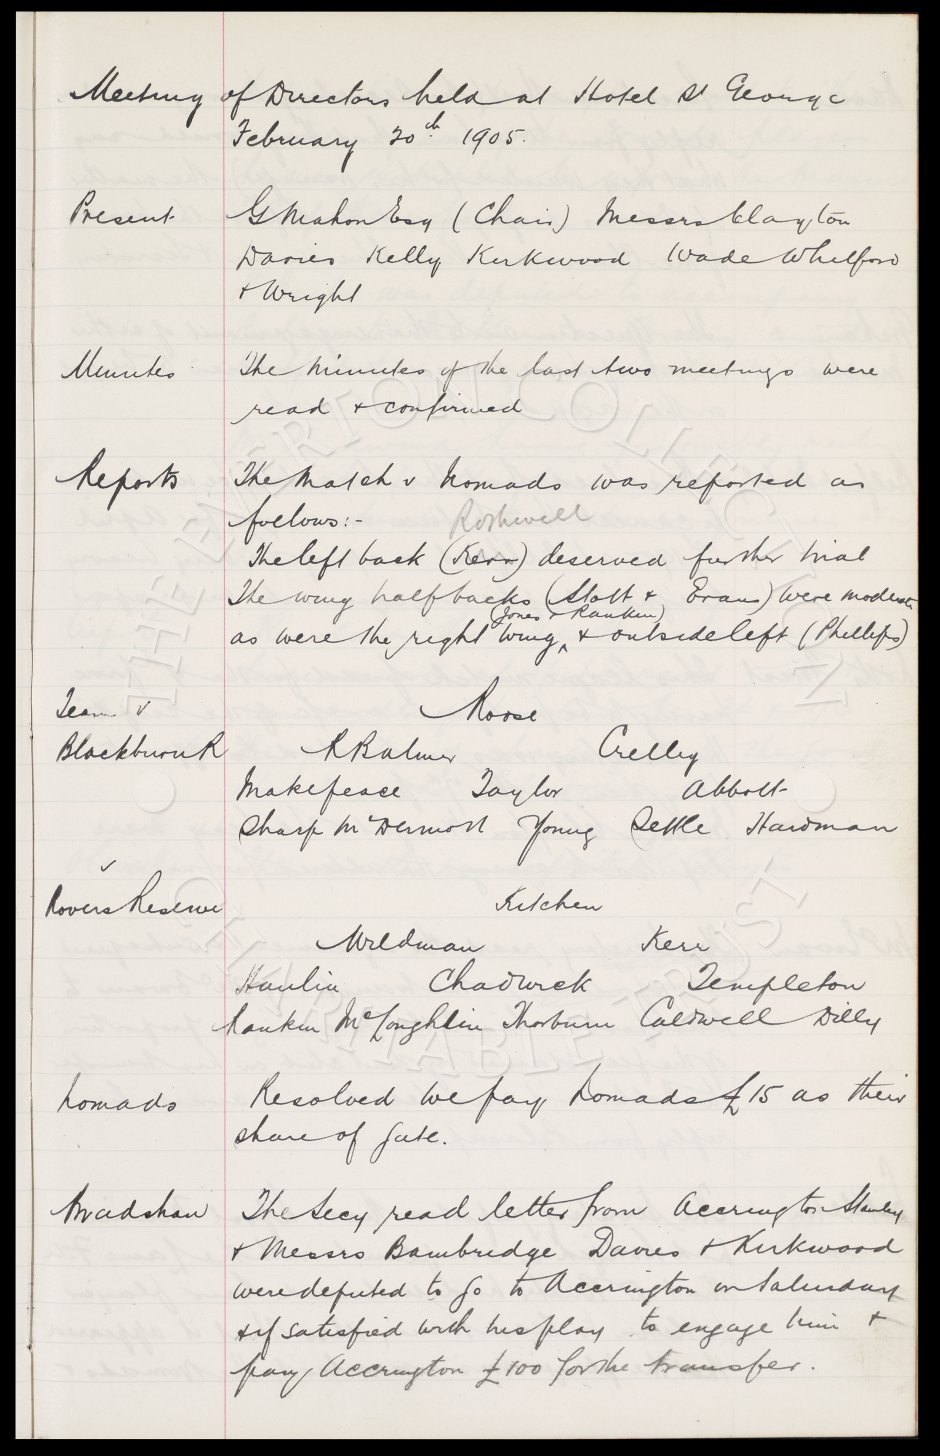 Meeting of Directors held at Hotel St George
February 20th 1905.
Present G Mahon Esq (Chair) Messrs Clayton
Davies Kelly Kirkwood Wade Whitford
& Wright
Minutes The minutes of the last two meetings were
read & confirmed
Reports The Match v Nomads was reported as
follows:- Rothwell
The left back (Kerr) deserved further trial
The wing half backs (Stott & Evans) were moderate
(Jones & Rankin)
as were the right wing ^ & outside left (Phillips)
Team v Roose
Blackburn R R Balmer Crelley
Makepeace Taylor Abbott
Sharp McDermott Young Settle Hardman
v
Rovers Reserve Kitchen
Wildman Kerr
Hanlin Chadwick Templeton
Rankin McLoughlin Thorburn Caldwell Dilly
Nomads Resolved we pay Nomads £15 as their
share of gate.
Bradshaw The Secy read letter from Accrington Stanley
& Messrs Bambridge Davies & Kirkwood
were deputed to go to Accrington on Saturday
& if satisfied with his play to engage him &
pay Accrington £100 for the transfer.
THE EVERTON COLLECTION
CHARITABLE TRUST